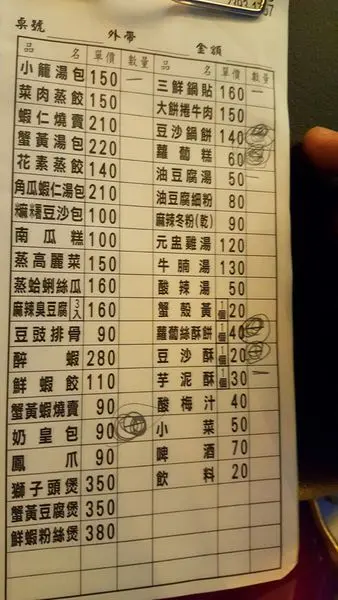 桌號 外帶 金額
品名 單價 數量 品名 單價 數量
小籠湯包 150 一 三鮮鍋貼 160 一
菜肉蒸餃 150 大餅捲牛肉 150
蝦仁燒賣 210 豆沙鍋餅 140
蟹黃湯包 220 蘿蔔糕 60
花素蒸餃 140 油豆腐湯 50 一
角瓜蝦仁湯包 210 油豆腐細粉 80
糯糬豆沙包 100 麻辣冬粉(乾) 90
南瓜糕 100 元盅雞湯 120
蒸高麗菜 150 牛腩湯 130
蒸蛤蜊絲瓜 160 酸辣湯 50
麻辣臭豆腐 3入 160 蟹殼黃 1個 20
豆豉排骨 90 蘿蔔絲酥餅 1個 40
醉蝦 280 豆沙酥 1個 20
鮮蝦餃 110 芋泥酥 1個 30 一
蟹黃蝦燒賣 90 酸梅汁 40
奶皇包 90 小菜 50
鳳爪 90 啤酒 70
獅子頭煲 350 飲料 20
蟹黃豆腐煲 350
鮮蝦粉絲煲 380